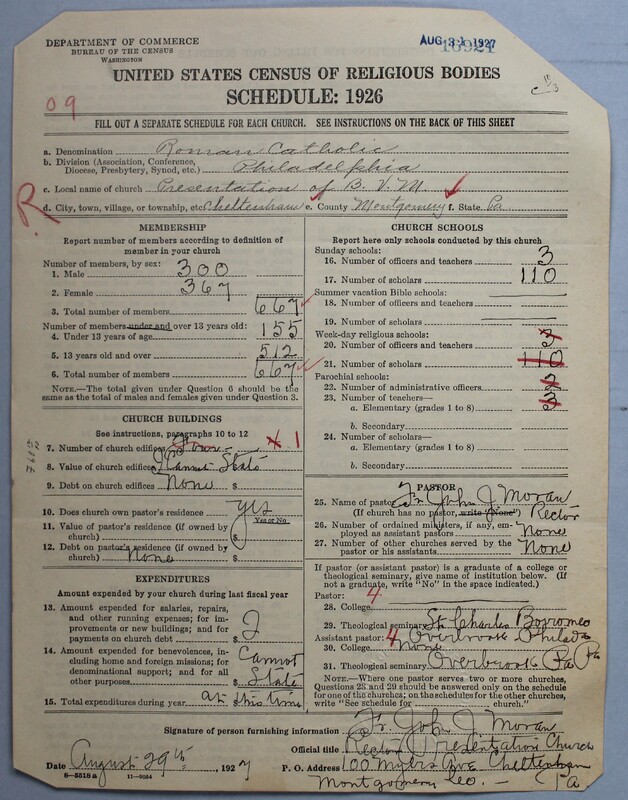 DEPARTMENT OF COMMERCE
BUREAU OF THE CENSUS
WASHINGTON
AUG 31 1927
16927
UNITED STATES CENSUS OF RELIGIOUS BODIES
SCHEDULE: 1926
09
FILL OUT A SEPARATE SCHEDULE FOR EACH CHURCH. SEE INSTRUCTIONS ON THE BACK OF THIS SHEET
a. Denomination Roman Catholic
b. Division (Association, Conference, Diocese, Presbytery, Synod, etc.) Philadelphia
c. Local name of church Presentation of B. V. M.
R
d. City, town, village, or township, etc Cheltenham e. County Montgomery f. State Pa
MEMBERSHIP
Report number of members according to definition of
member in your church
Number of members, by sex:
1. Male 300
2. Female 367
3. Total number of members 667
Number of members under and over 13 years old:
4. Under 13 years of age 155
5. 13 years old and over 512
6. Total number of members 667
NOTE.—The total given under Question 6 should be the
same as the total of males and females given under Question 3.
CHURCH BUILDINGS
See instructions, paragraphs 10 to 12
7. Number of church edifices 1
8. Value of church edifices $ I Cannot State
9. Debt on church edifices None
10. Does church own pastor's residence yes
Yes or No
11. Value of pastor's residence (if owned by
church) $
12. Debt on pastor's residence (if owned by
church) None $
EXPENDITURES
Amount expended by your church during last fiscal year
13. Amount expended for salaries, repairs,
and other running expenses; for im-
provements or new buildings; and for
payments on church debt $ I
14. Amount expended for benevolences, in-
cluding home and foreign missions; for
denominational support; and for all
other purposes $ Cannot State
15. Total expenditures during year at this time
CHURCH SCHOOLS
Report here only schools conducted by this church
Sunday schools:
16. Number of officers and teachers 3
17. Number of scholars 110
Summer vacation Bible schools:
18. Number of officers and teachers
19. Number of scholars
Week-day religious schools:
20. Number of officers and teachers 3
21. Number of scholars 110
Parochial schools:
22. Number of administrative officers 2
23. Number of teachers— 3
a. Elementary (grades 1 to 8)
b. Secondary
24. Number of scholars—
a. Elementary (grades 1 to 8)
b. Secondary
PASTOR
25. Name of pastor Fr John J Moran
(If church has no pastor, write "None") Rector
26. Number of ordained ministers, if any, em-
ployed as assistant pastors None
27. Number of other churches served by the
pastor or his assistants None
If pastor (or assistant pastor) is a graduate of a college or
theological seminary, give name of institution below. (If
not a graduate, write "No" in the space indicated.)
Pastor: 4
28. College
29. Theological seminary St. Charles Borromeo
Assistant pastor: 4 Overbrook Philada
30. College None Pa
31. Theological seminary Overbrook Pa
NOTE.—Where one pastor serves two or more churches,
Questions 28 and 29 should be answered only on the schedule
for one of the churches; on the schedules for the other churches,
write "See schedule for church."
Signature of person furnishing information Fr John J Moran
Official title Rector Presentation Church
Date August 29th 1927 P. O. Address 100 Myers Ave Cheltenham
6—5518 a 11—9084 Montgomery Co. — Pa